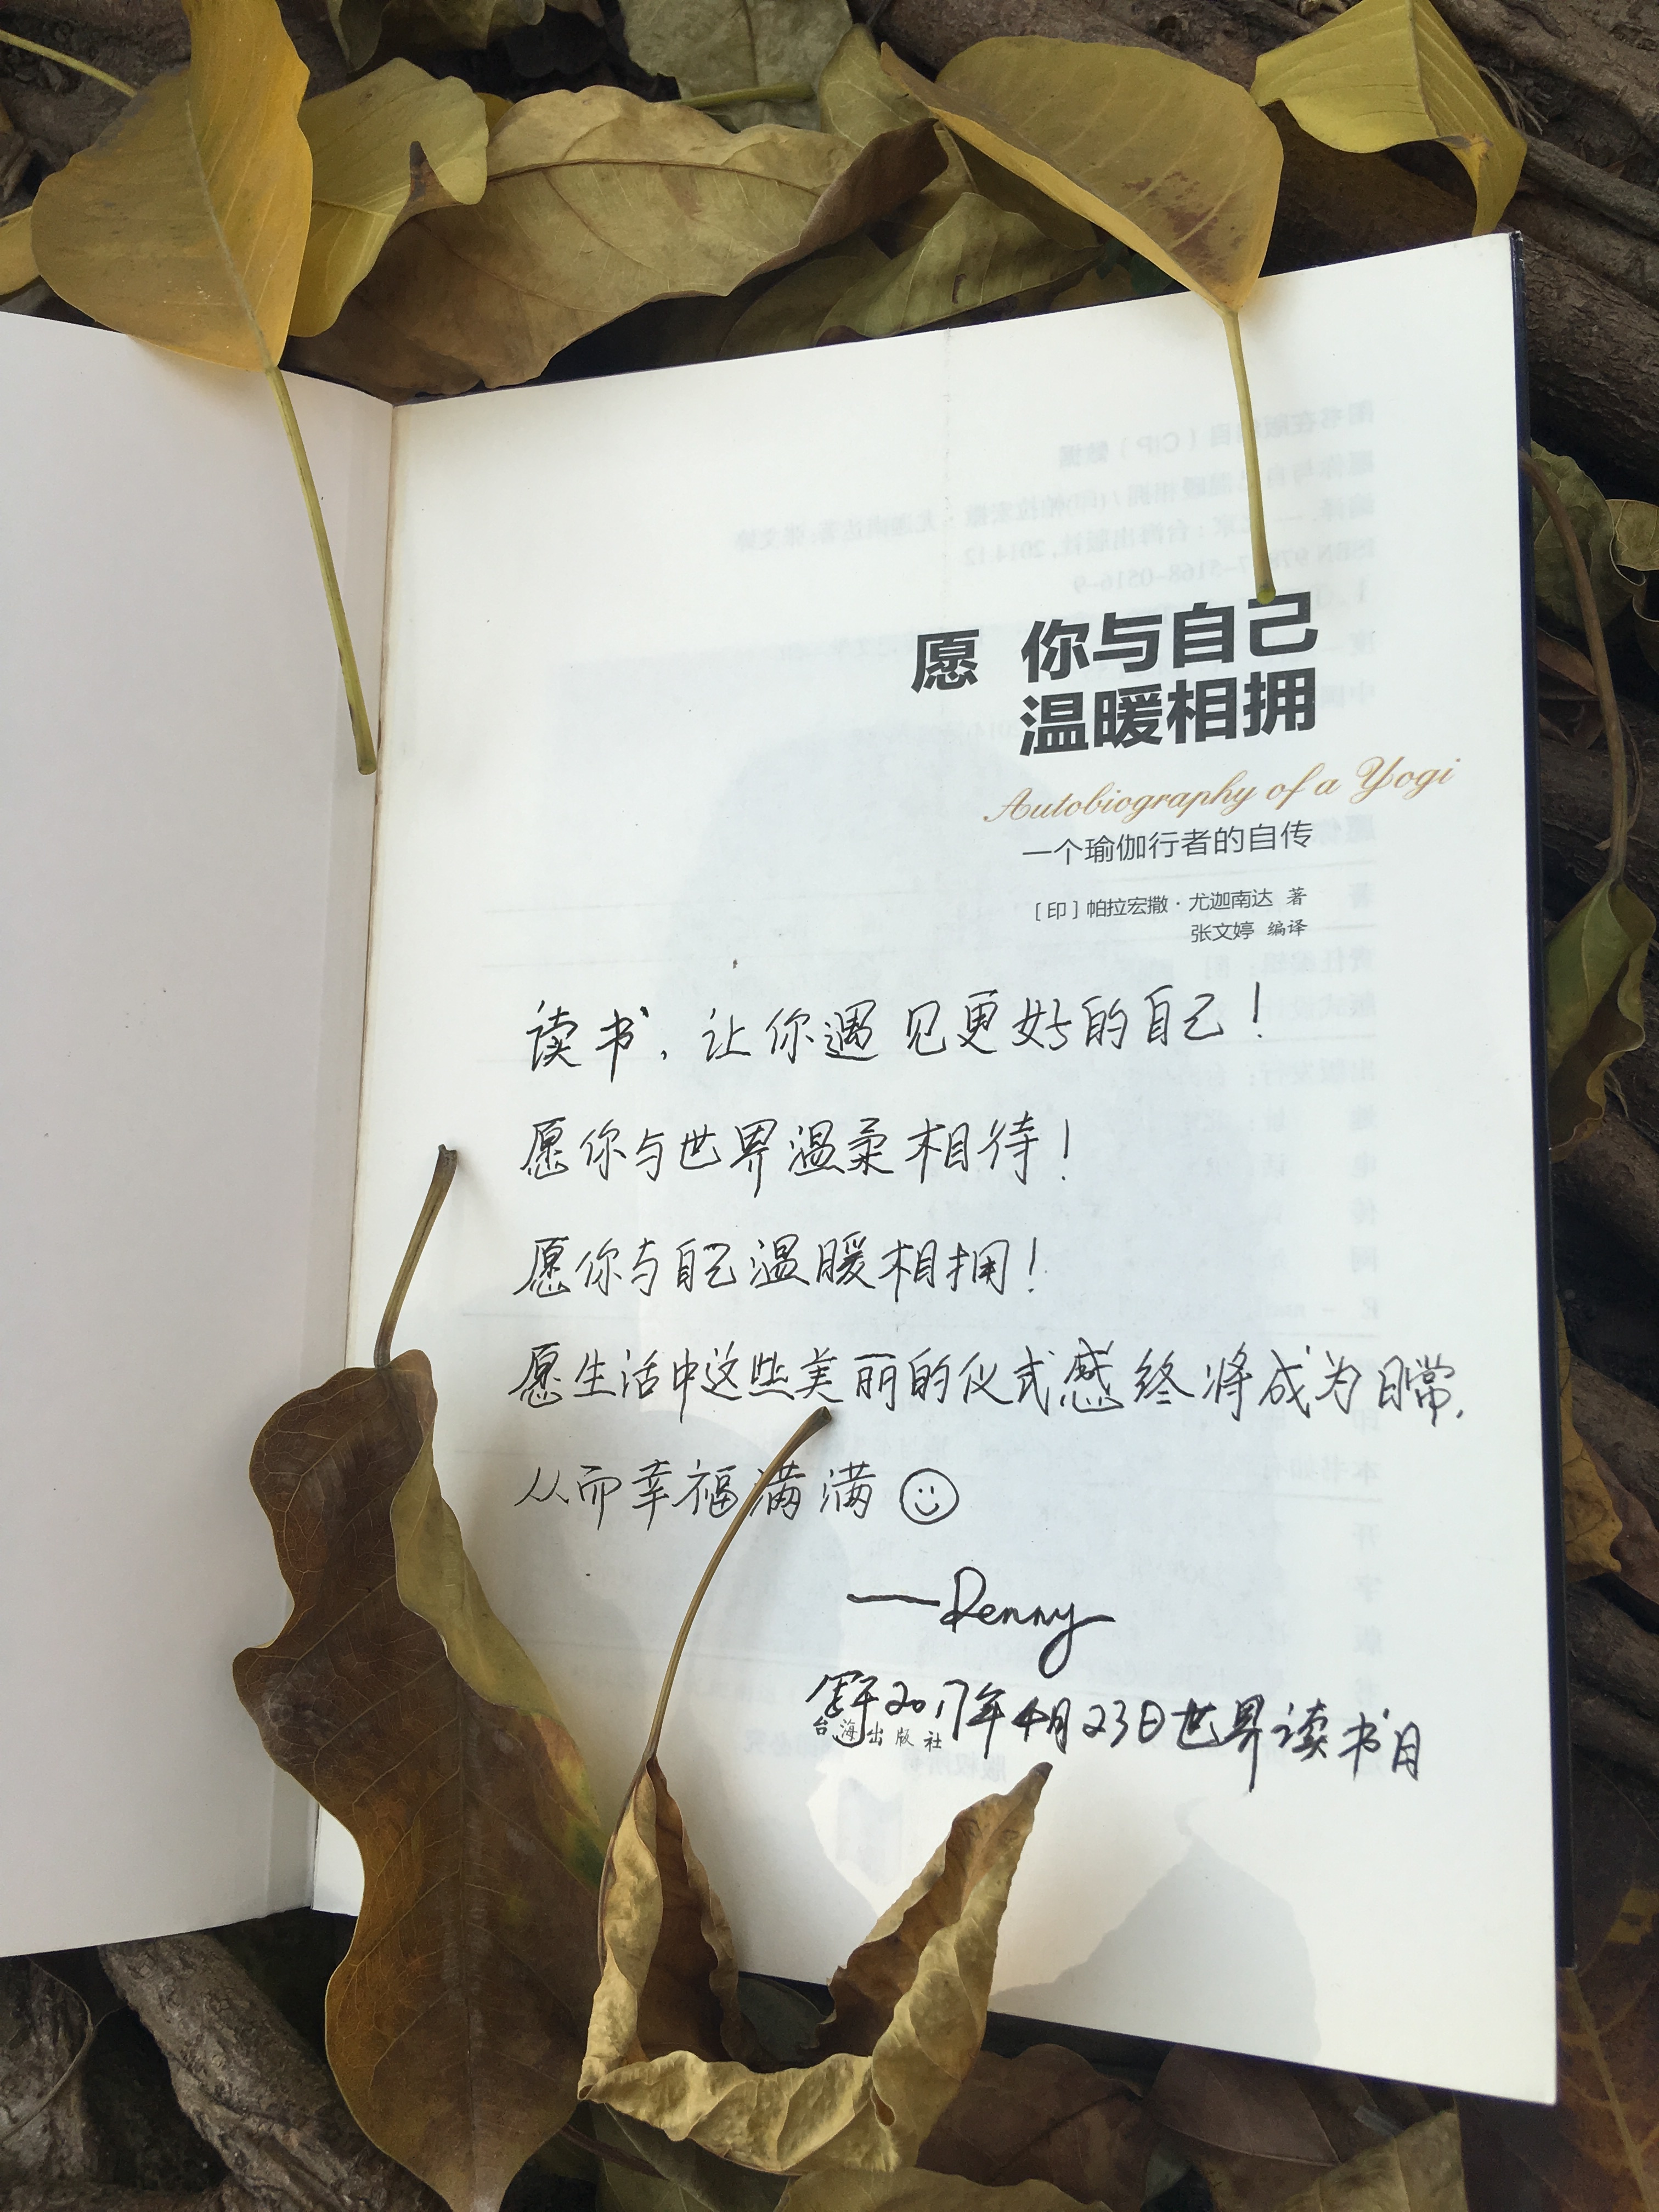 愿 你与自己
温暖相拥
Autobiography of a Yogi
一个瑜伽行者的自传
[印] 帕拉宏撒·尤迦南达 著
张文婷 编译
读书，让你遇见更好的自己！
愿你与世界温柔相待！
愿你与自己温暖相拥！
愿生活中这些美丽的仪式感终将成为日常，
从而幸福满满
—Penny
写于2017年4月23日世界读书日
台海出版社